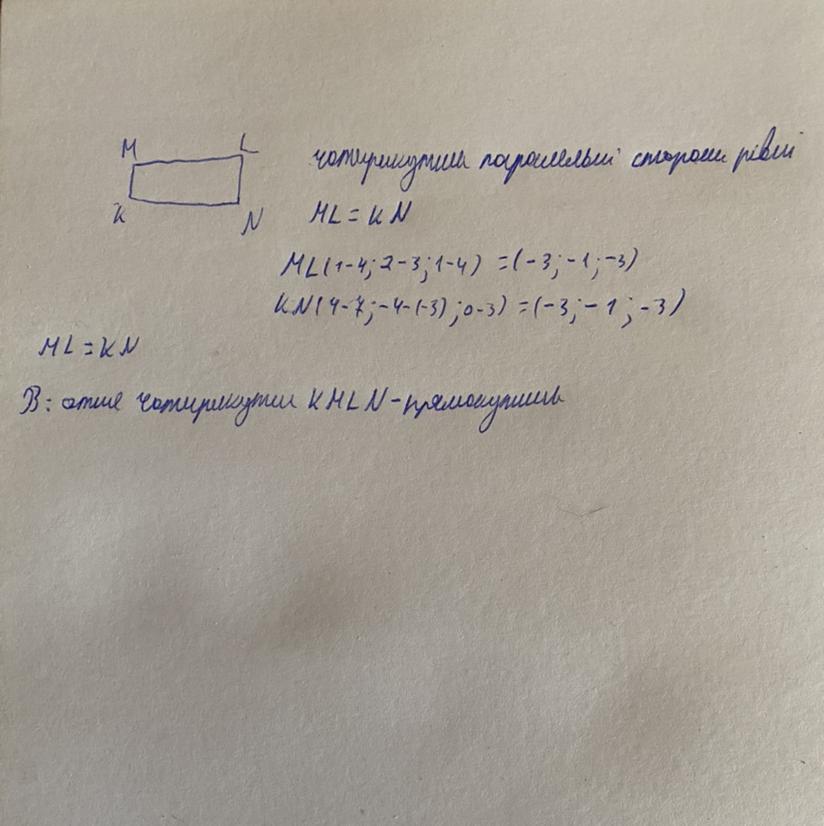 M L
чотирикутник паралельні сторони рівні
K N
ML = KN
ML(1-4; 2-3; 1-4) = (-3; -1; -3)
KN(4-7; -4-(-3); 0-3) = (-3; -1; -3)
ML = KN
В: отже чотирикутник KMLN - прямокутник